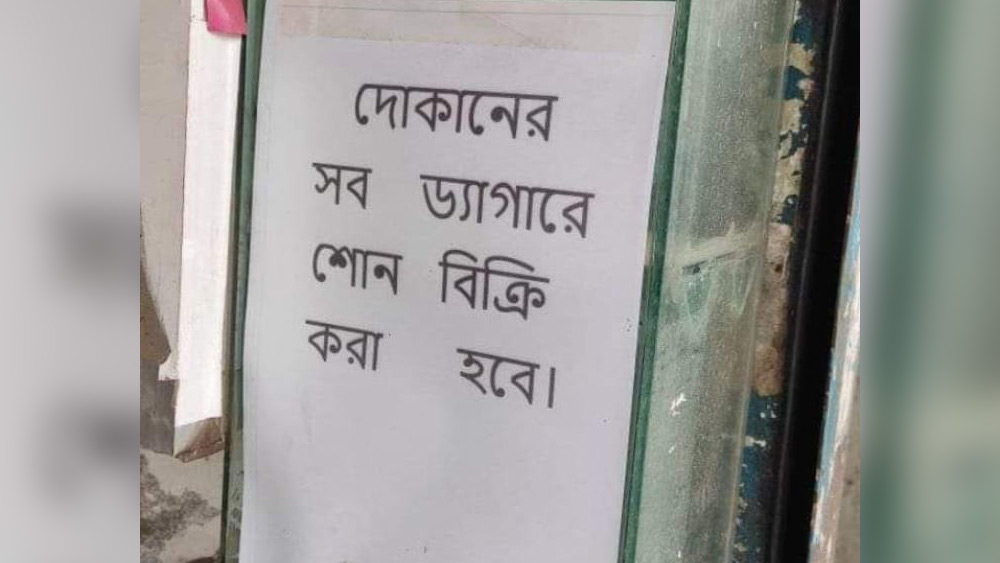 দোকানের
সব ড্যাগারে
শোন বিক্রি
করা হবে।